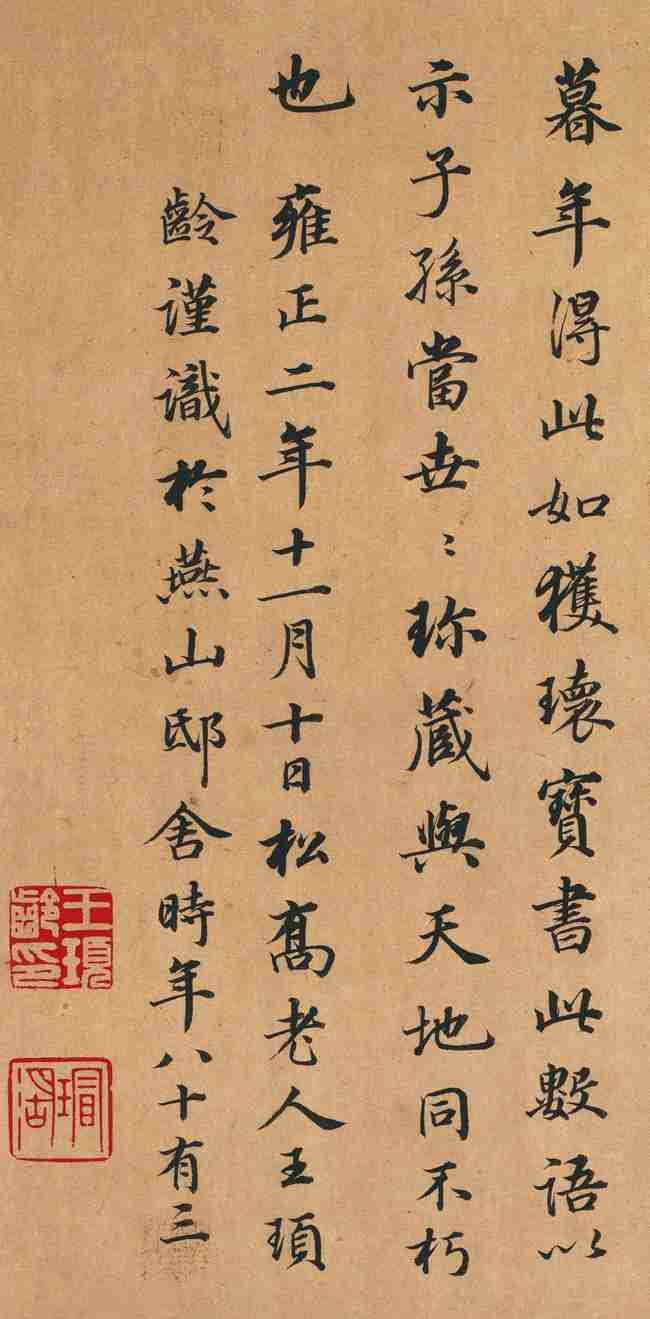 暮年得此如獲瓌寶書此數語以
示子孫當世〻珎藏與天地同不朽
也 雍正二年十一月十日松髙老人王頊
齡謹識於燕山邸舍時年八十有三
王頊齡印
瑁湖